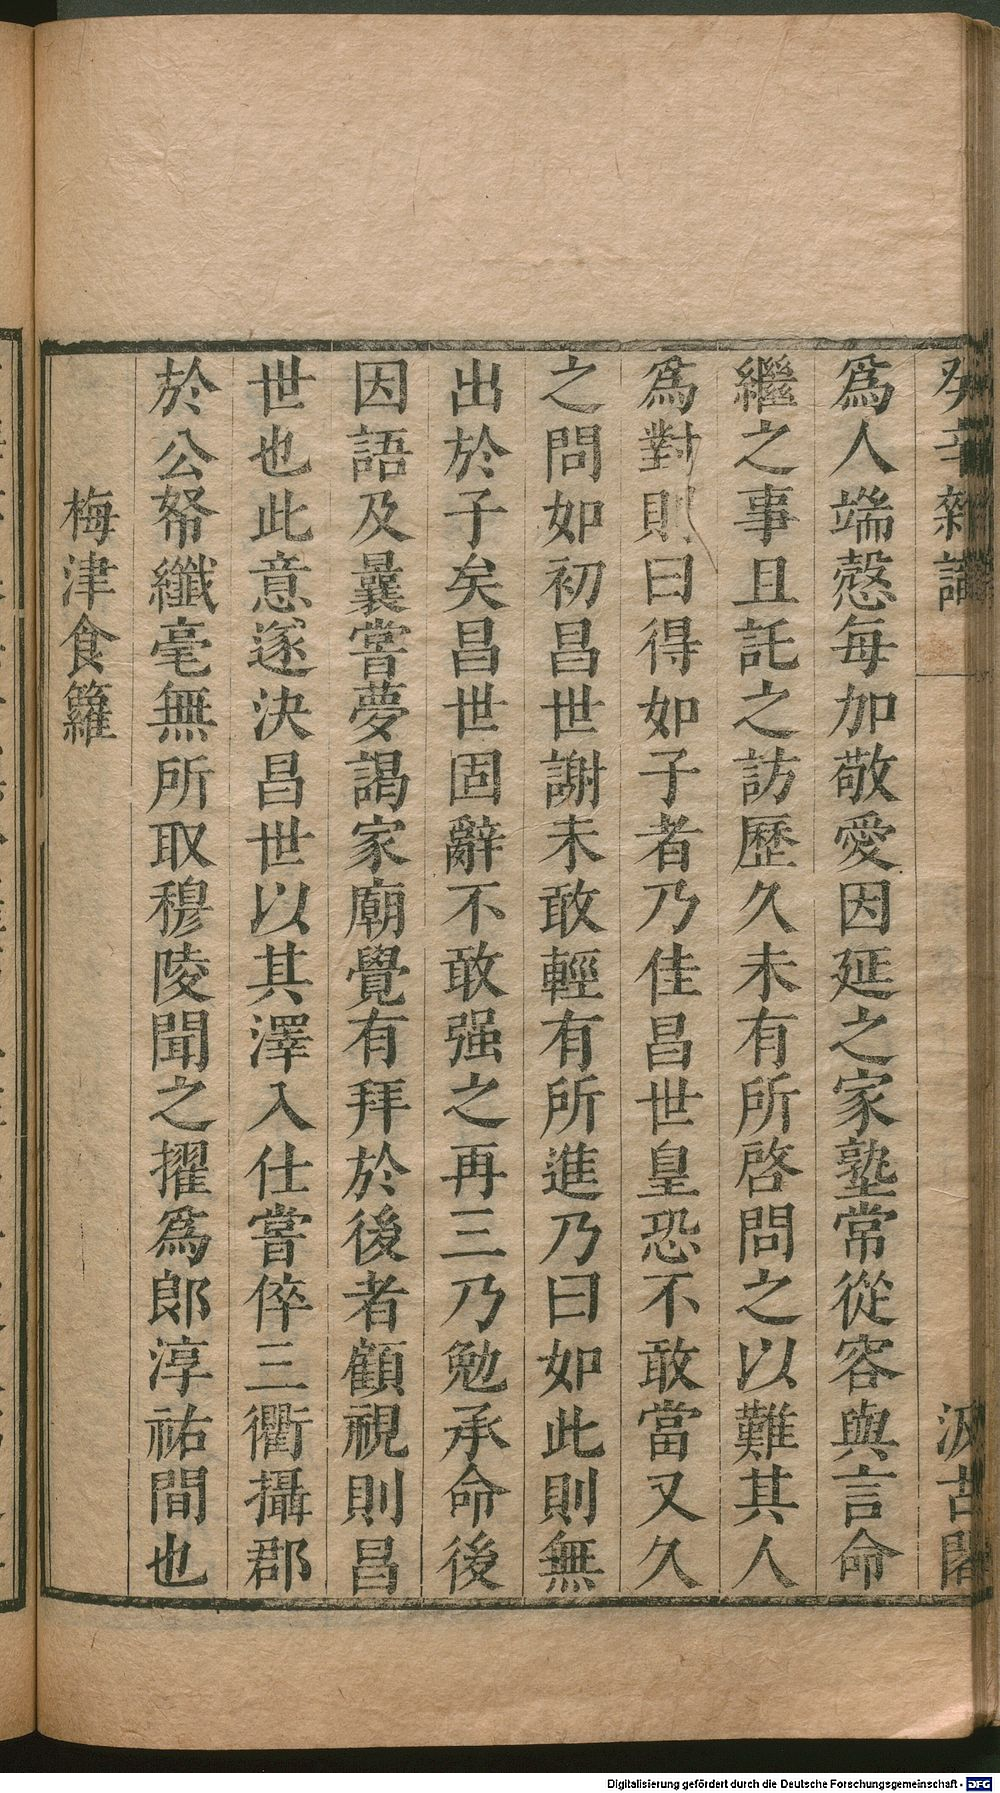 癸辛雜識
汲古閣
爲人端慤每加敬愛因延之家塾常從容與言命
繼之事且託之訪歷久未有所啓問之以難其人
爲對則曰得如子者乃佳昌世皇恐不敢當又久
之問如初昌世謝未敢輕有所進乃曰如此則無
出於子矣昌世固辭不敢强之再三乃勉承命後
因語及曩嘗夢謁家廟覺有拜於後者顧視則昌
世也此意遂決昌世以其澤入仕嘗倅三衢攝郡
於公帑纖毫無所取穆陵聞之擢爲郎淳祐間也
梅津食籮
Digitalisierung gefördert durch die Deutsche Forschungsgemeinschaft - DFG